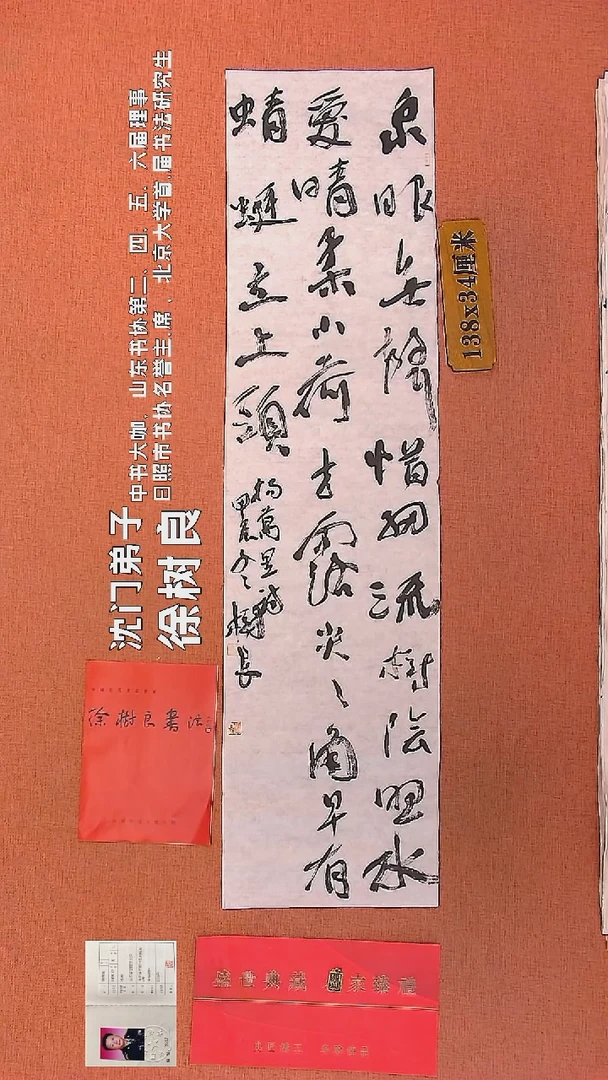 沈门弟子
徐树良
中书大咖、山东书协第二、四、五、六届理事
日照市书协名誉主席、北京大学首届书法研究生
泉眼无聲惜細流樹陰照水
愛晴柔小荷才露尖々角早有
蜻蜓立上頭
楊萬里詩
甲辰冬樹良
138x34厘米
徐樹良書法
盛世典藏 國家臻禮